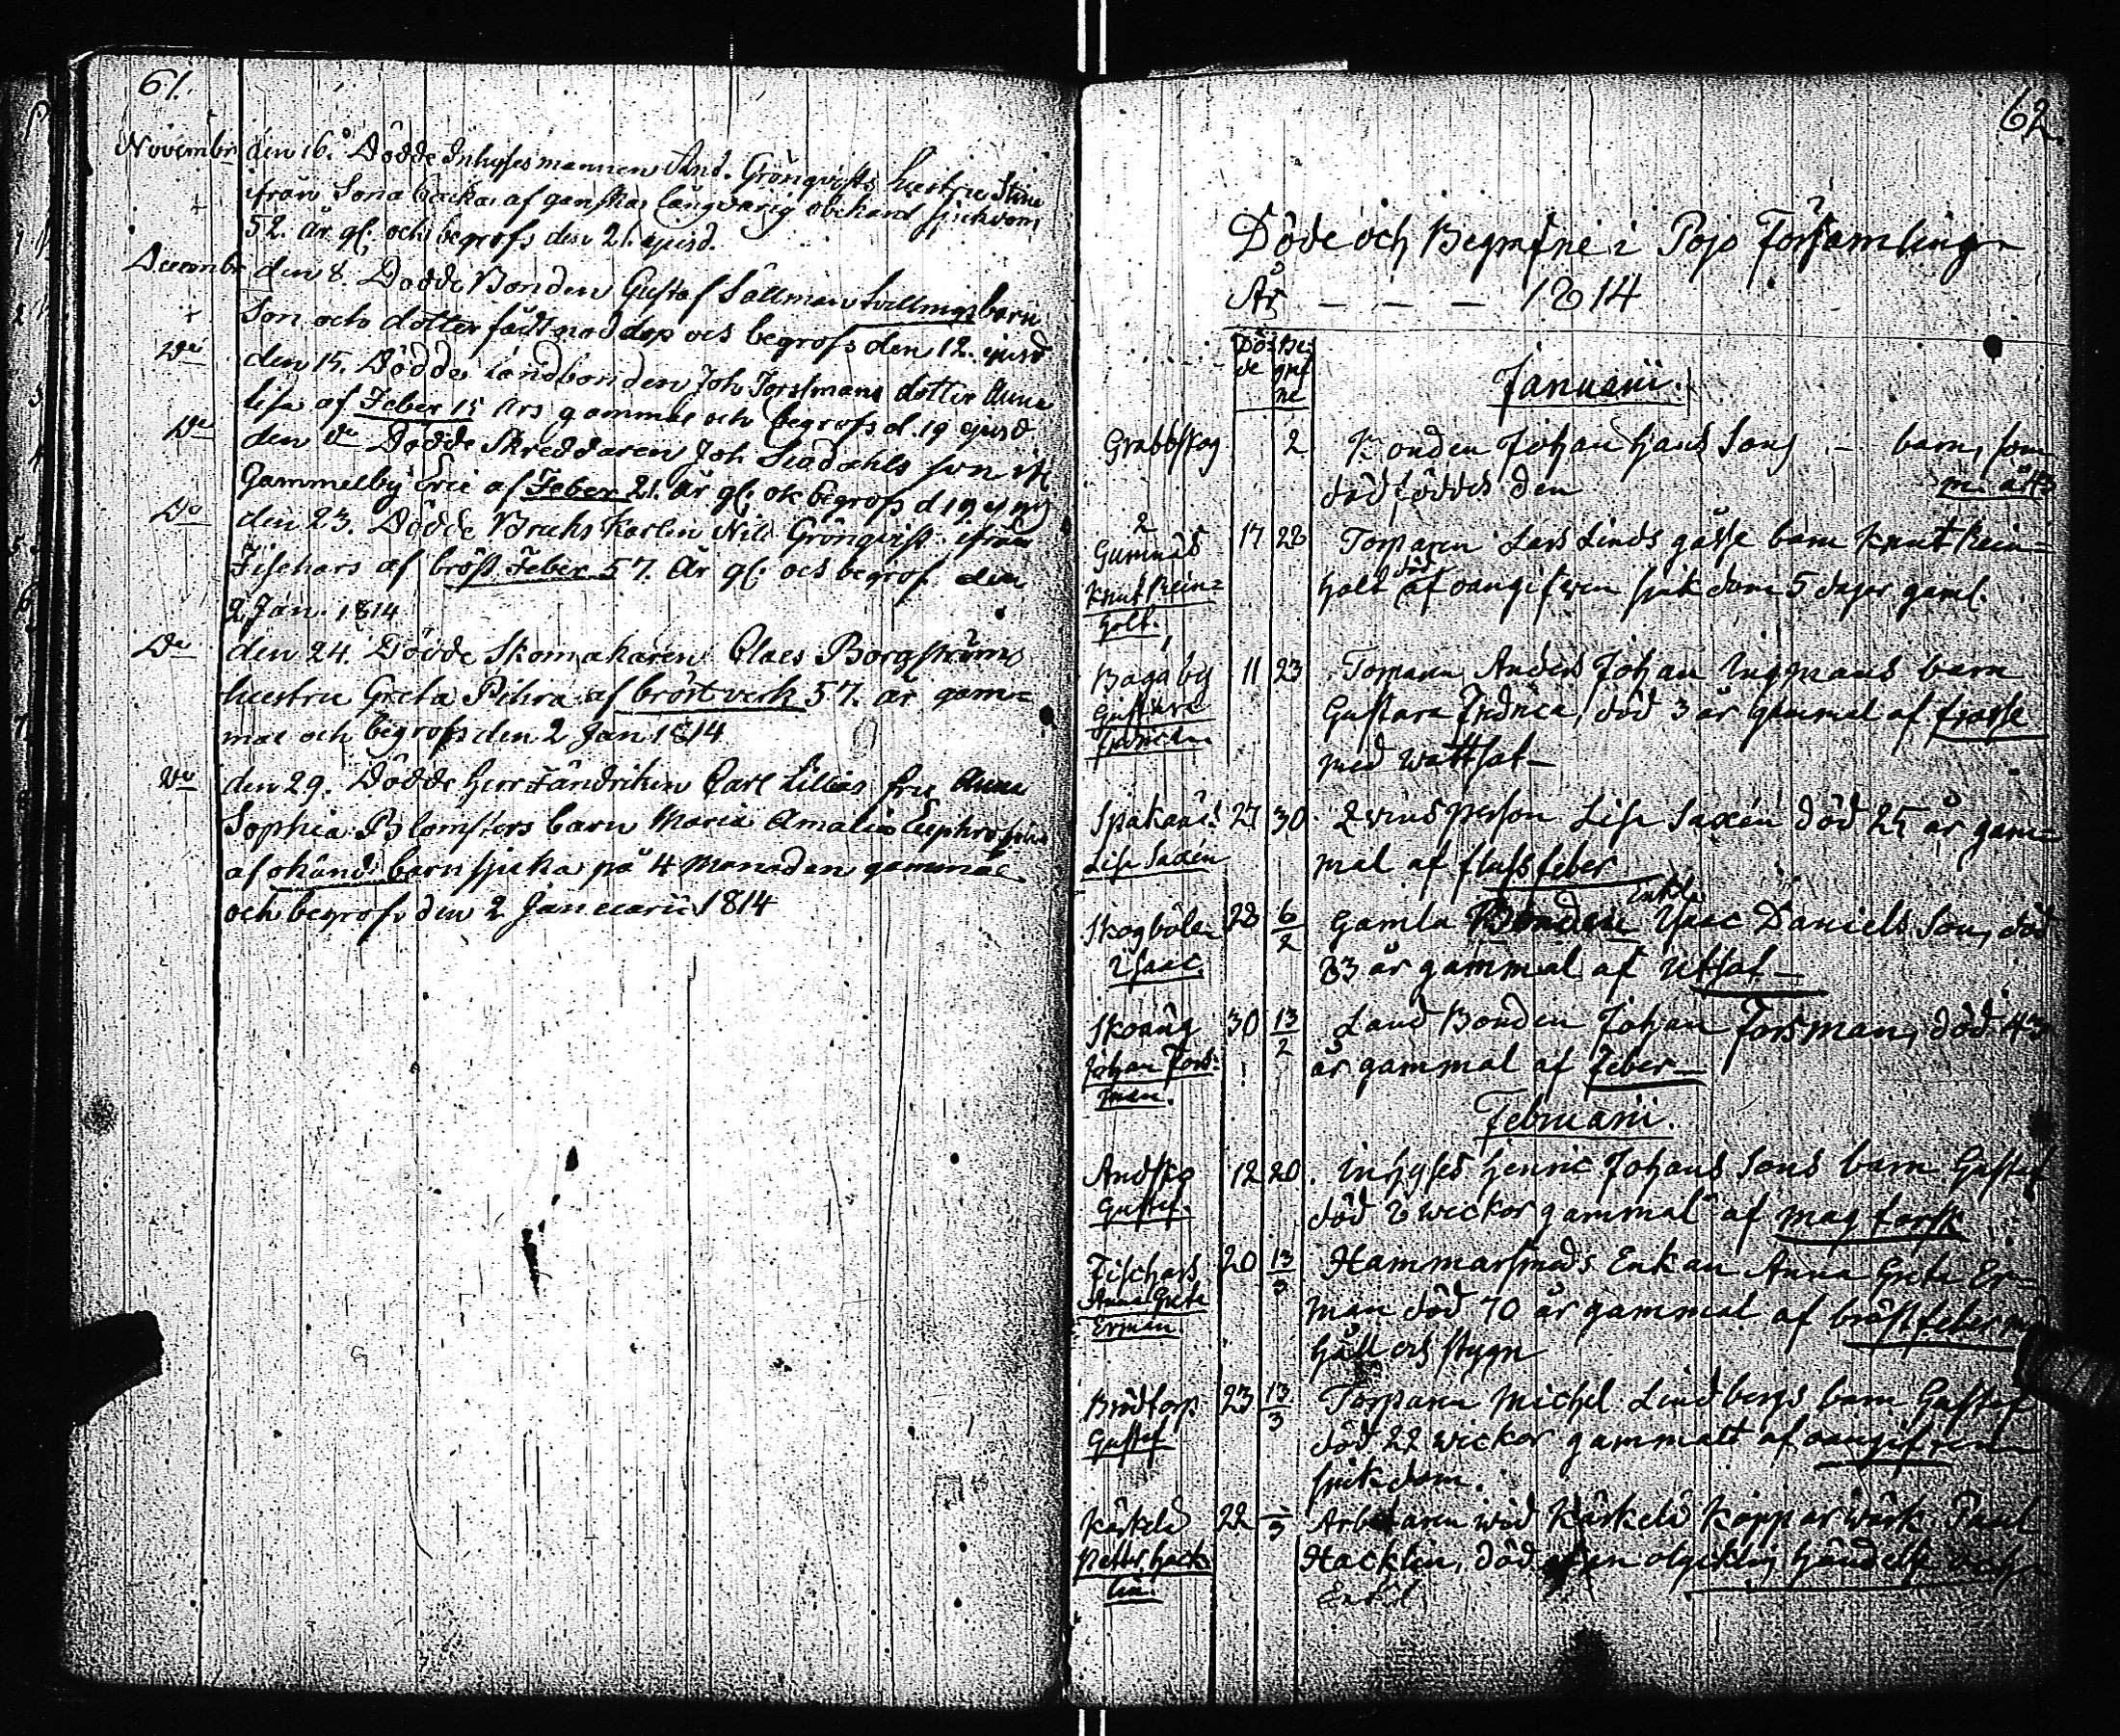 61.
Novembr den 16. Dödde Inhysesmannen And. Grönqvists hustru Stina
ifrån Sonabacka af ganska långvarig obekand sjukdom
52. år gl. och begrofs den 21. ejusd.
Decembr den 8. Dödde Bonden Gustaf Sallmans tvillingsbarn
Son och dotter födt nöddop och begrofs den 12. ejusd
Do den 15. Dödde Landbonden Joh Forssmans dotter Anna
Lisa af Feber 15 års gammal och begrofs d. 19 ejusd
Do den do Dödde Skreddaren Joh. son
Gammelby Eric af Feber 21. år gl. ok begrofs d 19 ejusd
Do den 23. Dödde Bruks Karlen Nils Grönqvist ifrån
Fiskars af bröst Feber 57. år gl. och begrof. den
2 Jan. 1814
Do den 24. Dödde Skomakaren Claes Borgströms
hustru Greta Pihra af bröstverk 57. år gam=
mal och begrofs den 2 Jan 1814
Do den 29. Dödde Herr Fändriken Carl Lillies fru Anna
Sophia Blomsters barn Maria Amalia Euphrosina
af okänd barnsjuka på 4 Månaden gammal
och begrofs den 2 Januarii 1814
62.
Döde och Begrafne i Pojo Församling
År — — — 1814
Dö= de Be: graf ne
Januarii.
Grabbskog 2 Bonden Johan Hans Sons — barn, som
död föddes den
Gumnäs 17 23 Torparen Lars Linds gosse barn Knut Rein=
Knut Rein= holt död af oangifwen sjukdom 5 dagar gaml.
holt.
Bagaby 11 23 Torparen Anders Johan Ingmans barn
Gustava Gustava Fredrica, död 3 år gammal af frossa
med wattsot —
27 30. Lisa Saxén död 25 år gam=
Lisa Saxén mal af flussfeber
Skogböle 28 6/2 Gamla Bonden Isac Daniels Son, död
Isaac. 83 år gammal af Uttsot —
Skoäng 30 13/2 Land Bonden Johan Forsman, död 43
Johan Fors: år gammal af Feber —
man.
Februarii.
Andskog 12 20. Inhyses Henric Johans Sons barn Gustaf
Gustaf. död wickor gammal af mag
Fischars 20 13/3 Hammarsmeds Enkan Anna Greta Er=
Anna Greta man död 70 år gammal af bröstfeber
Erman håll och stygn
Brödtorp 23 13/3 Torparen Michel Lindbergs barn Gustaf
Gustaf död 22 wickor gammalt af oangifwen
sjukdom.
Kärkelä 22 Arbetaren wid Kärkelä Kopparwärk Paul
Petter Hack Hacklin, död af en olycklig händelse
lin.